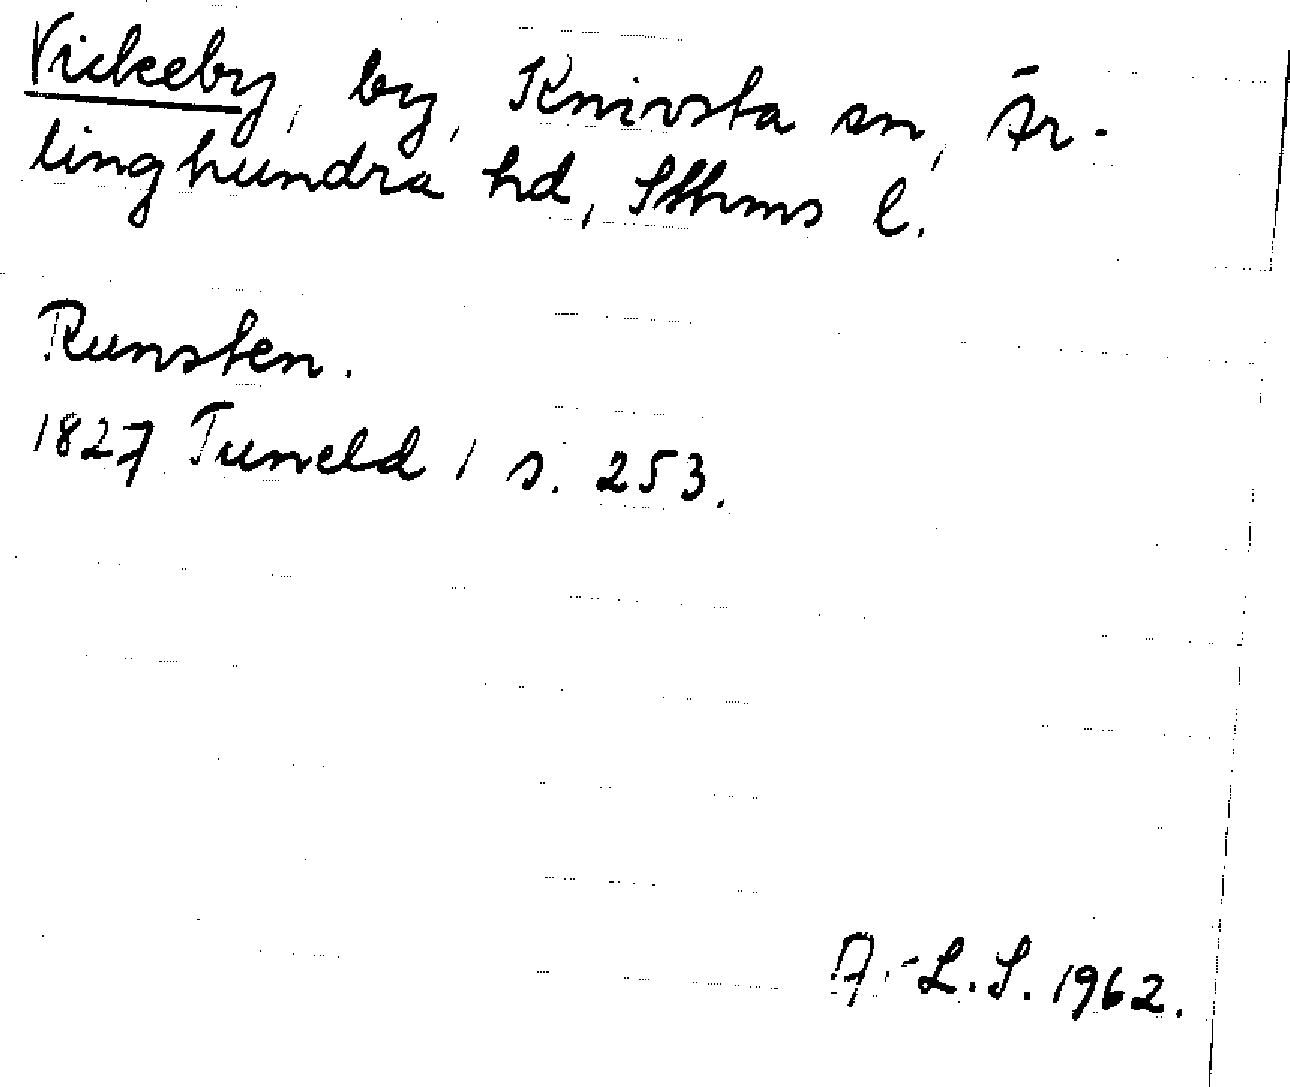 Vickeby, by, Knivsta sn, Är-
linghundra hd, Sthms l.
Runsten.
1827 Tuneld 1 s. 253.
A.-L.S. 1962.